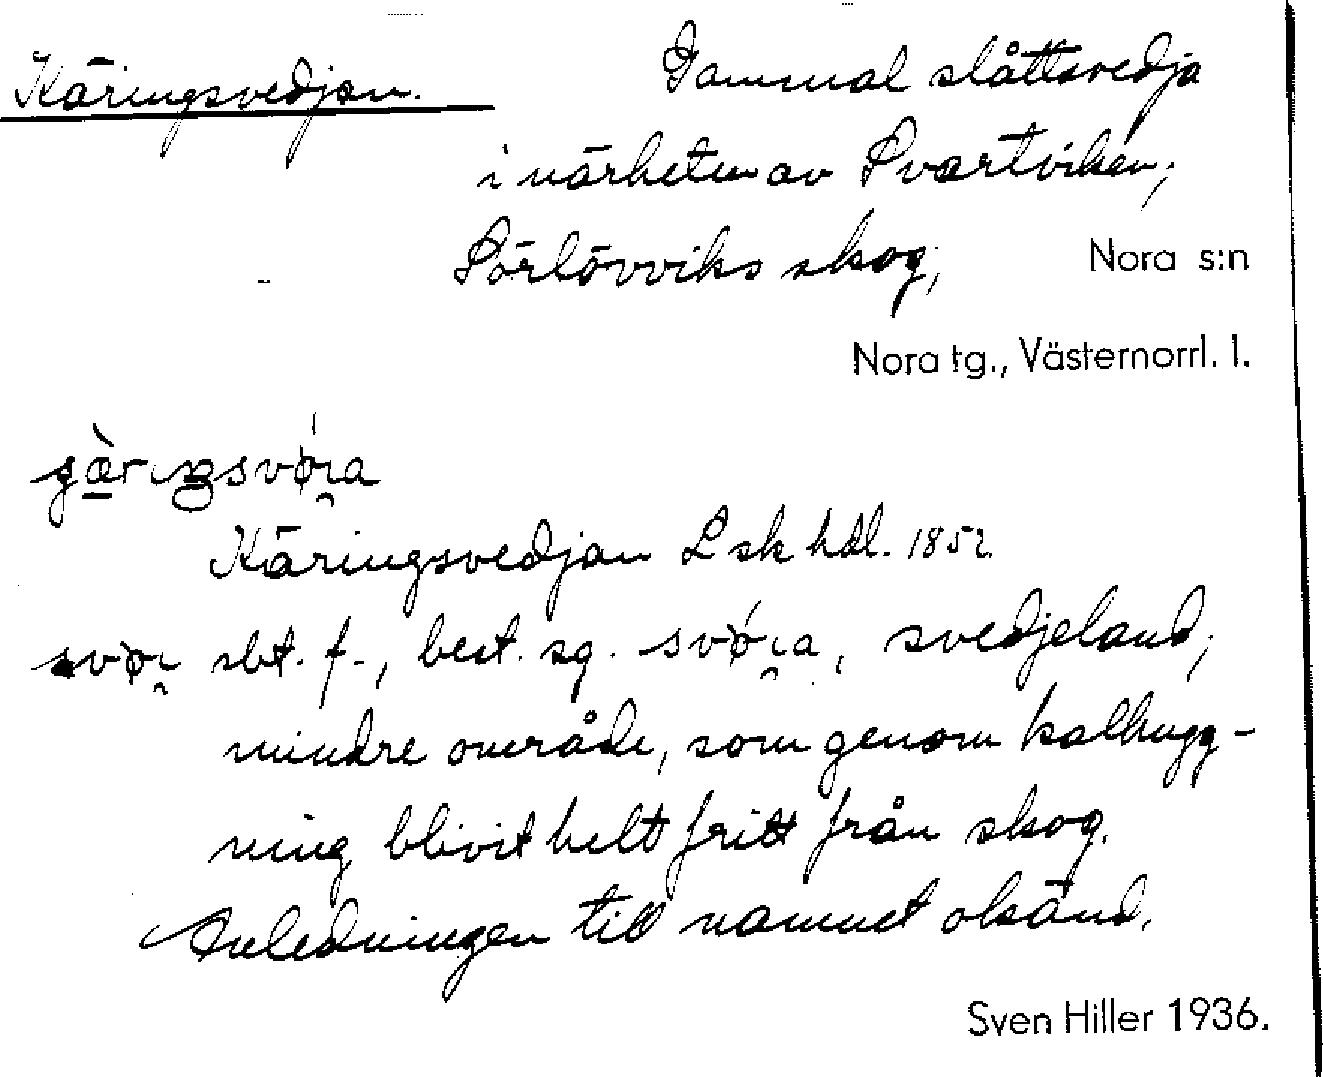 Käringsvedjan. Gammal slåttsvedja
i närheten av Svartviken,
Sörlövviks skog, Nora s:n
Nora tg., Västernorrl. l.
Käringsvedjan L sk hdl. 1852.
sbt. f., best. sg. svedjeland;
mindre område, som genom kalhugg-
ning blivit helt fritt från skog.
Anledningen till namnet okänd.
Sven Hiller 1936.